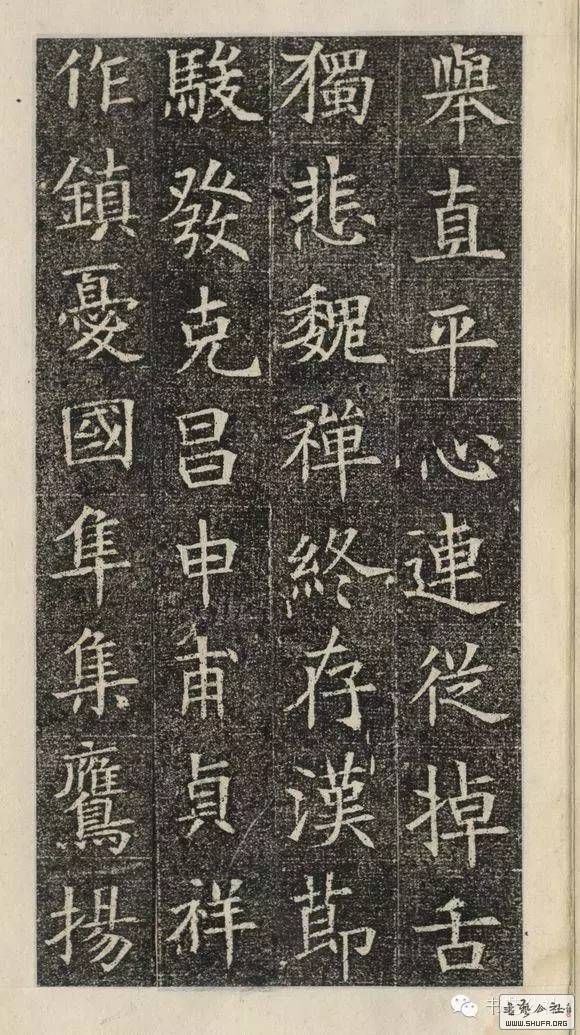 舉直平心連從掉舌
獨悲魏禪終存漢莭
駿發克昌申甫貞祥
作鎮憂國隼集鷹揚
书
WWW.SHUFA.ORG